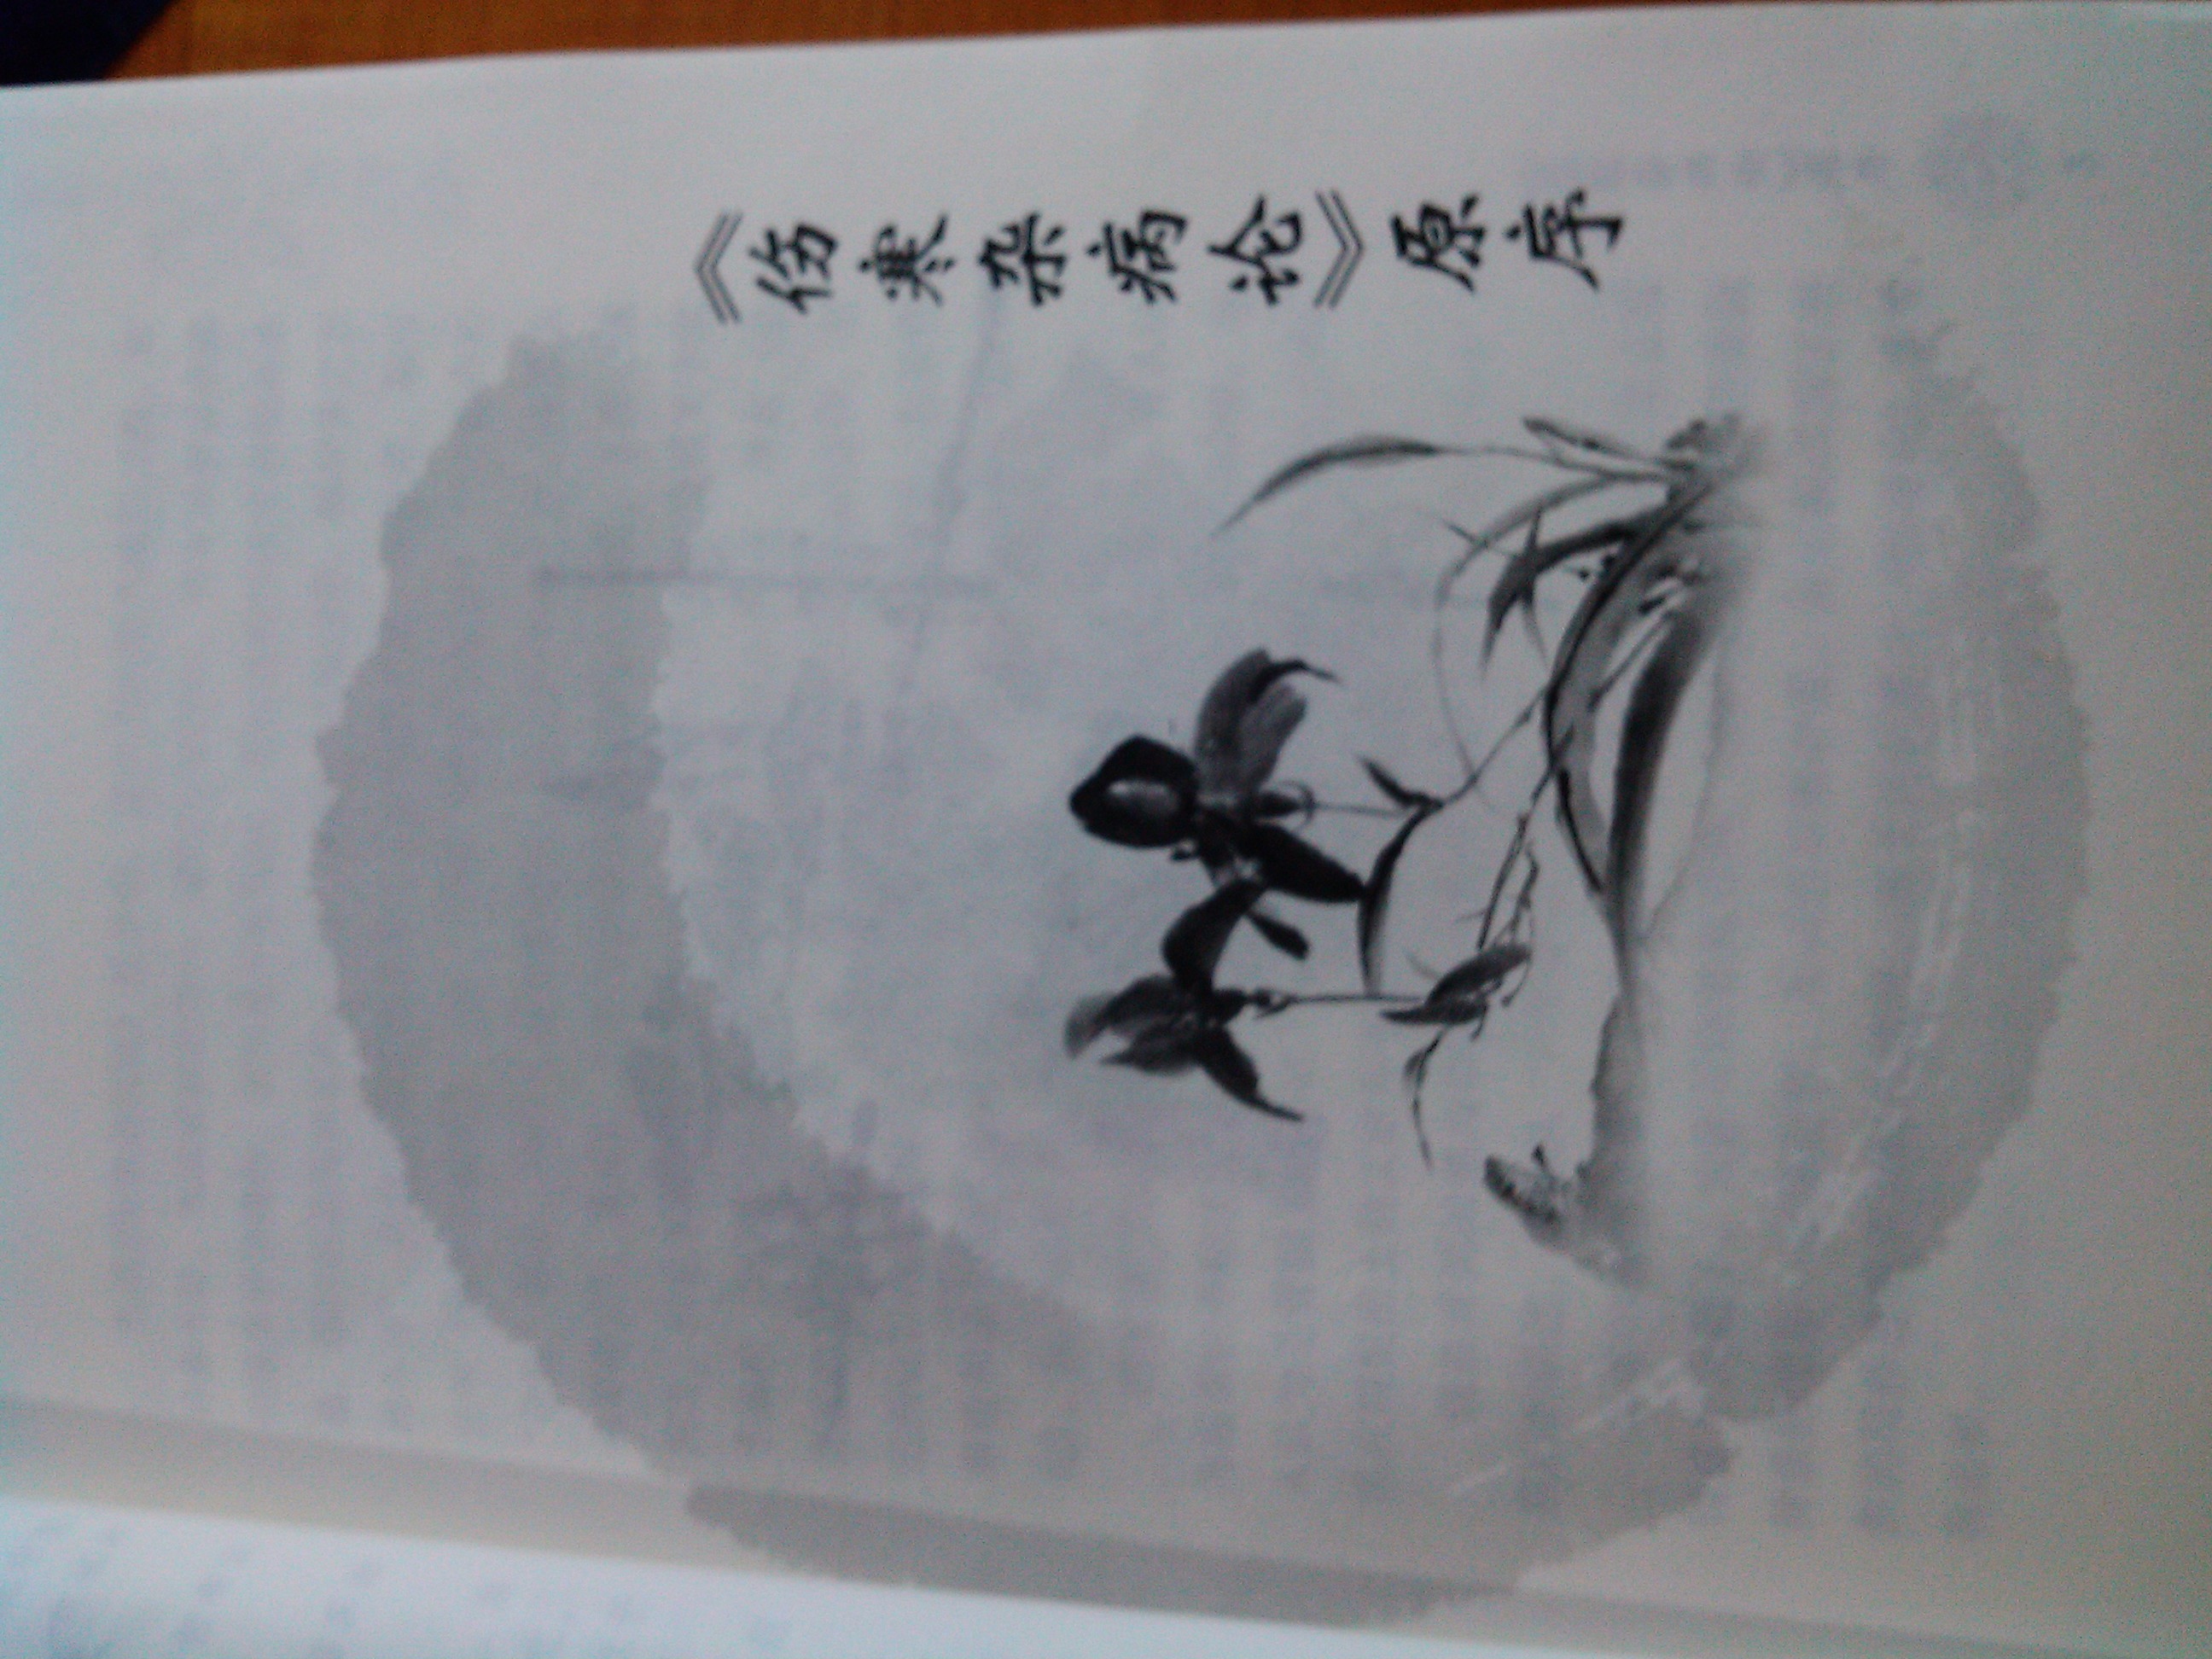 《伤寒杂病论》原序